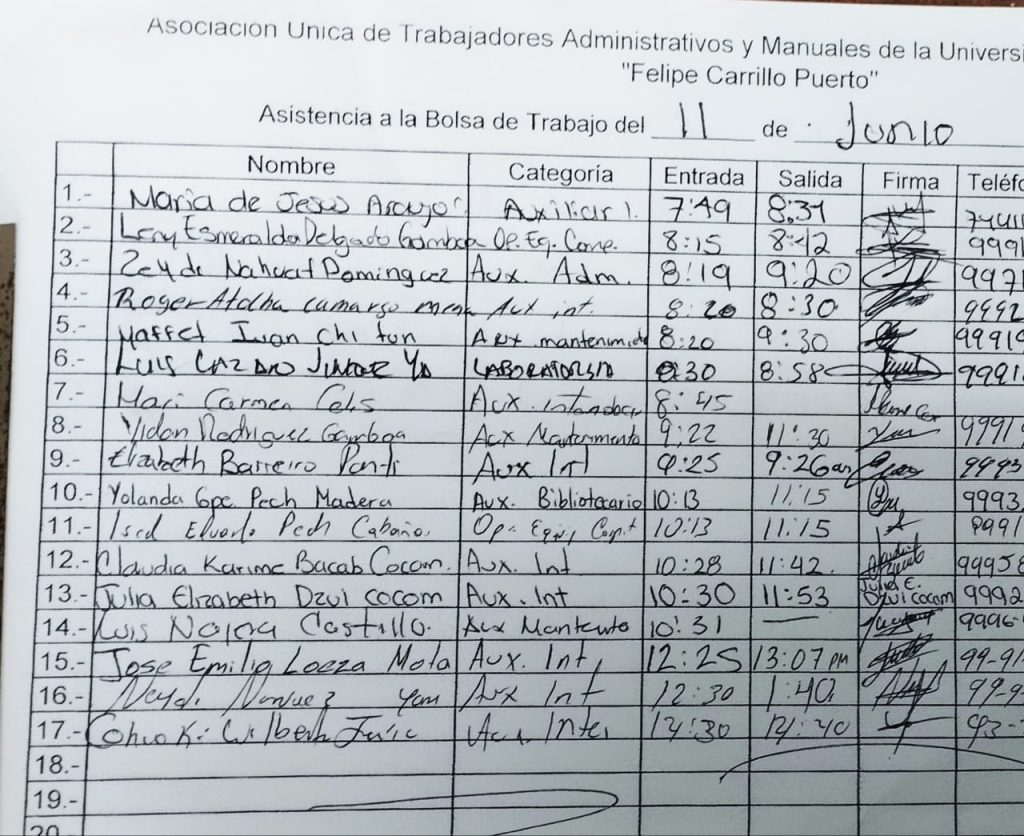 Asociación Unica de Trabajadores Administrativos y Manuales de la Universi
"Felipe Carrillo Puerto"
Asistencia a la Bolsa de Trabajo del 11 de Junio
Nombre Categoría Entrada Salida Firma Teléfo
1.- Maria de Jesus Araujo Auxiliar 1. 7:49 8:31
2.- Leny Esmeralda Delgado Gamboa Op. Eq. Comp. 8:15 8:42 9991
3.- Zeyde Nahuat Dominguez Aux. Adm. 8:19 9:20 9971
4.- Roger Atocha camargo mena Aux int. 8:20 8:30 9992
5.- Yaffet Ivan Chi tun mantenim. 8:20 9:30 99919
6.- LUIS LABORATORIO 8:30 8:58 9991
7.- Mari Carmen Celis Aux. 8:45
8.- Rodriguez Gamboa Aux Mantenimento 9:22 11:30 9991
9.- Elizabeth Barreiro Aux Int 9:25 9:26am 9993
10.- Yolanda Gpe. Pech Madera Aux. Bibliotecario 10:13 11:15 9993
11.- Pech Op. 10:13 11:15 9991
12.- Claudia Karime Bacab Cocom. Aux. Int 10:28 11:42. 99958
13.- Julia Elizabeth Dzul cocom Aux. Int 10:30 11:53 Julia E. Dzul cocom 9992
14.- Luis Castillo. Aux 10:31 — 9996
15.- Jose Emilio Loeza Mota Aux. Int, 12:25 13:07 PM 99-91
16.- Yam Aux Int 12:30 1:40 99-9
17.- Wilberth 93-
18.-
19.-
20.-